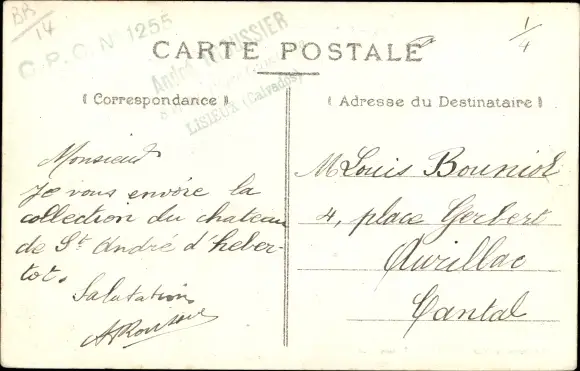 BR
14
C.P.C. N° 1255
André ROUSSIER
LISIEUX (Calvados)
1/4
CARTE POSTALE
Correspondance
Adresse du Destinataire
Monsieur
Je vous envoie la
collection du chateau
de St André d'heber-
tot.
Salutations
M Louis Bouniol
4, place Gerbert
Aurillac
Cantal